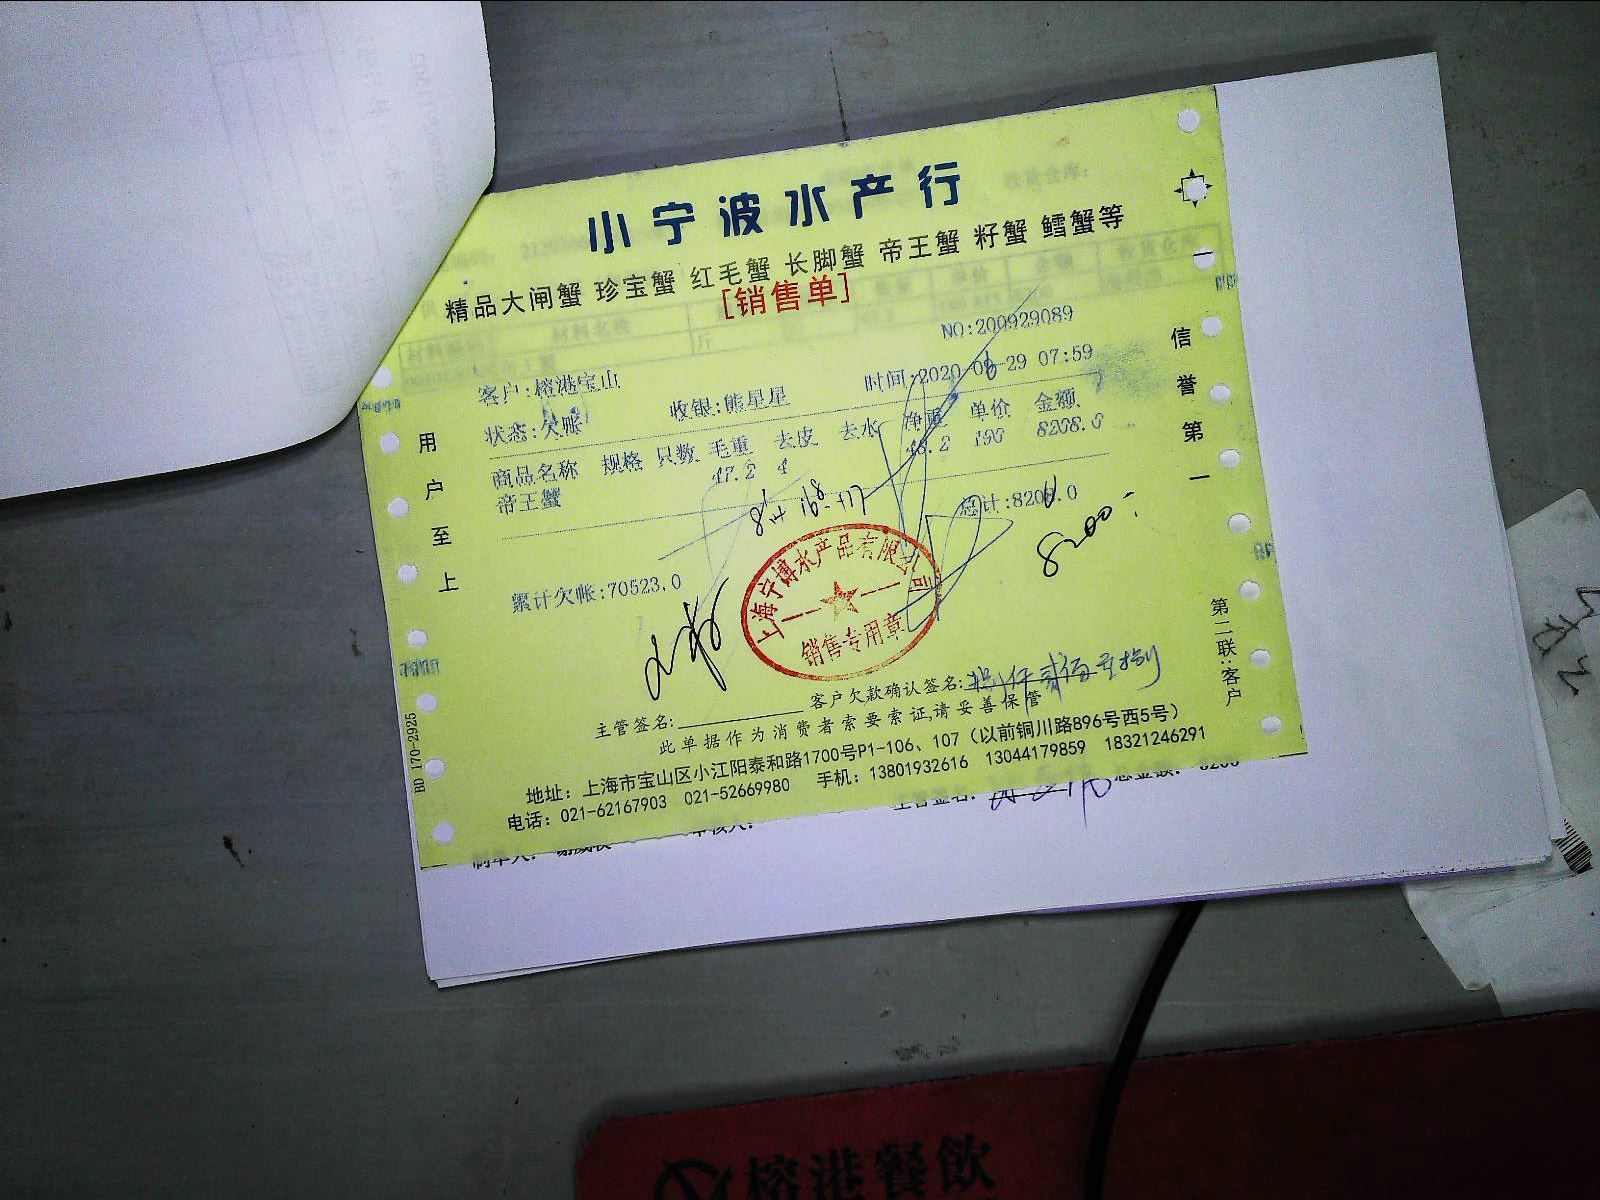 小宁波水产行
精品大闸蟹 珍宝蟹 红毛蟹 长脚蟹 帝王蟹 籽蟹 鳕蟹等
[销售单]
NO:200929089
客户:榕港宝山 收银:熊星星 时间:2020-09-29 07:59
状态:欠账
商品名称 规格 只数 毛重 去皮 去水 净重 单价 金额
帝王蟹 47.2 4 43.2 190 8208.0
总计:8208.0
8200
累计欠帐:70523.0
上海宁博水产品有限公司
销售专用章
主管签名: 客户欠款确认签名:
此单据作为消费者索要索证,请妥善保管
地址：上海市宝山区小江阳泰和路1700号P1-106、107（以前铜川路896号西5号）
电话：021-62167903 021-52669980 手机：13801932616 13044179859 18321246291
用户至上
信誉第一
第二联:客户
BD 170-2925
榕港餐飲